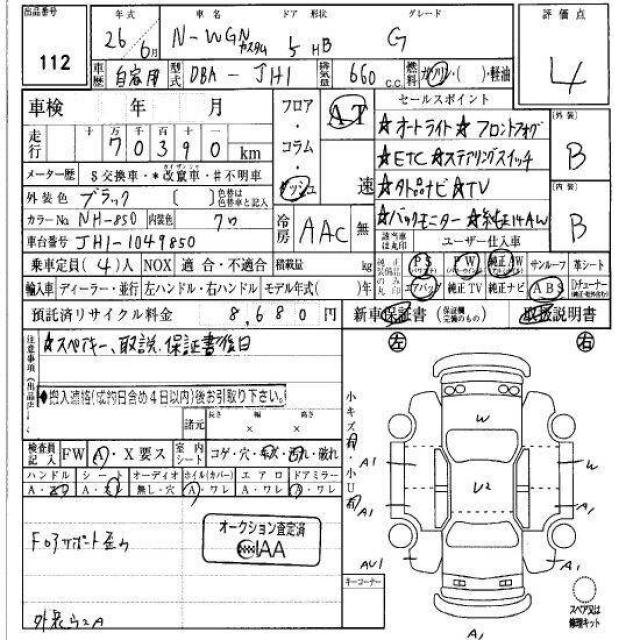 出品番号 112
年式 26年 6月
車名 N-WGN カスタム
ドア 形状 5 HB
グレード G
評価点 4
車歴 自家用
型式 DBA-JH1
排気量 660 c.c.
燃料 ガソリン・( )・軽油
車検 年 月
走行 十万千百十一 70390 km
メーター歴 $交換車・*改竄車・#不明車
外装色 ブラック 〔 〕 色替は色替車と記入
カラーNo. NH-850 内装色 クロ
車台番号 JH1-1049850
フロア・コラム・ダッシュ
AT 速
冷房 AAC 無
セールスポイント
☆オートライト☆フロントフォグ
☆ETC☆ステアリングスイッチ
☆外品ナビ☆TV
☆バックモニター☆純正14AW
該当車は丸印 ユーザー仕入車
外装 B
内装 B
乗車定員(4)人 NOX 適合・不適合 積載量 kg
純正装備品のみ丸印
PS PW 純正AW サンルーフ 革シート
エアバッグ 純正TV 純正ナビ ABS
輸入車 ディーラー・並行 左ハンドル・右ハンドル モデル年式( )年
預託済リサイクル料金 8,680円
新車保証書 (保証欄完備のもの) 取扱説明書
注意事項(出品店)
☆スペアキー、取説、保証書後日
◆搬入連絡(成約日含め4日以内)後お引取り下さい。
諸元 長さ × 幅 × 高さ
検査員記入 FW A・X要ス 室内シート コゲ・穴・破れ
ハンドル シート オーディオ ホイル(カバー) エアロ ドアミラー
無し・穴 A・ワレ A・ワレ A・ワレ
F03サポート歪み
オークション査定済
AA
左 右
小キズ有・小U有
W
A1
W
U2
A1
A1
AU1
A1
A1
キーコーナー
スペア又は修理キット